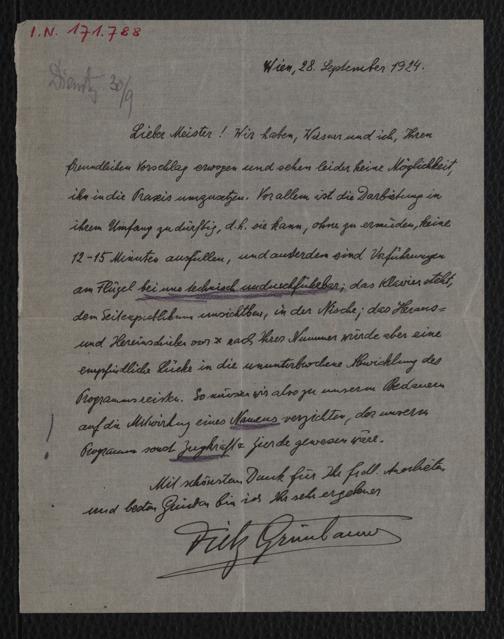 I.N. 171.788
Wien, 28. September 1924.
Dienstg. 30/9
Lieber Meister! Wir haben, Wiesner und ich, Ihren
freundlichen Vorschlag erwogen und sehen leider keine Möglichkeit,
ihn in die Praxis umzusetzen. Vor allem ist die Darbietung in
ihrem Umfang zu dürftig, d.h. sie kann, ohne zu ermüden, keine
12-15 Minuten ausfüllen, und ausserdem sind Vorführungen
am Flügel bei uns technisch undurchführbar; das Klavier steht,
dem Seitenpublikum unsichtbar, in der Nische; das Heraus=
und Hereinschieben vor & nach Ihrer Nummer würde aber eine
empfindliche Lücke in die ununterbrochene Abwicklung des
Programms reissen. So müssen wir also zu unserem Bedauern
auf die Mitwirkung eines Namens verzichten, der unserm
Programm sonst Zugkraft & Zierde gewesen wäre.
Mit schönstem Dank für Ihr frdl. Anerbieten
und besten Grüssen bin ich Ihr sehr ergebener
Fritz Grünbaum